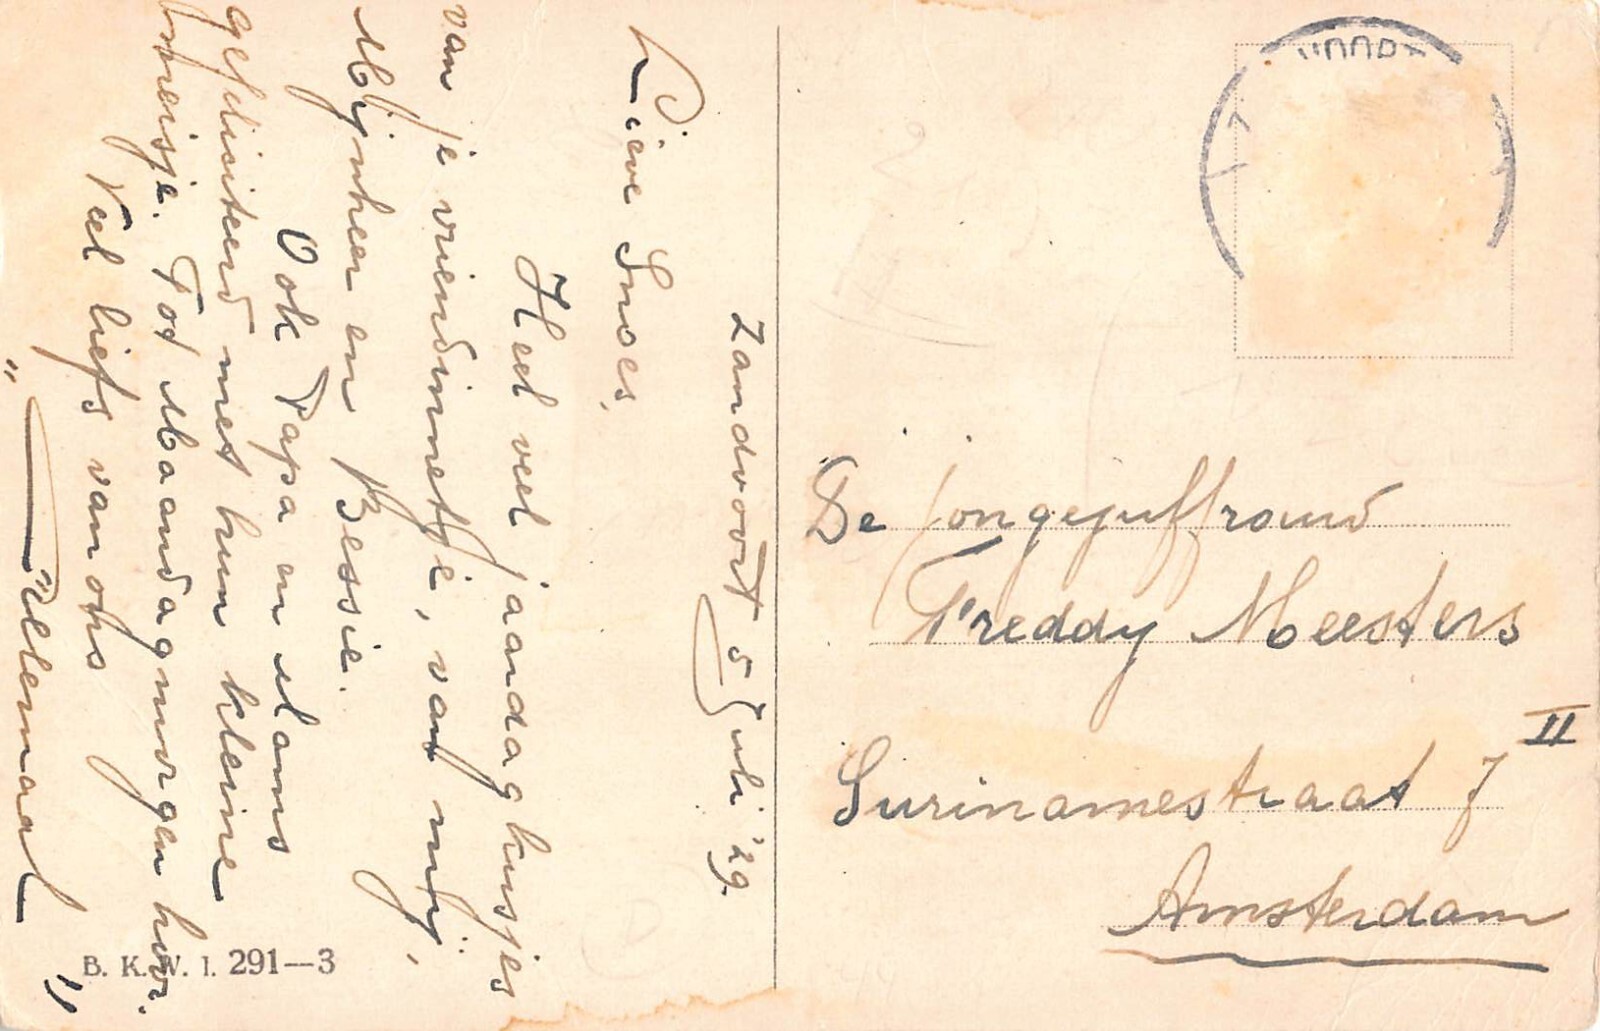 Zandvoort 5 Juli '29.
Lieve Snoes,
Heel veel jaardag kusjes
van je vriendinnetje, van mij,
Mijnheer en Bessie.
Ook Papa en Mama
gefeliciteerd met hun kleine
meisje. Tot Maandagmorgen hoor.
Veel liefs van ons
"Allemaal"
B. K. W. I. 291—3
De jongejuffrouw
Freddy Meesters
Surinamestraat 7 II
Amsterdam